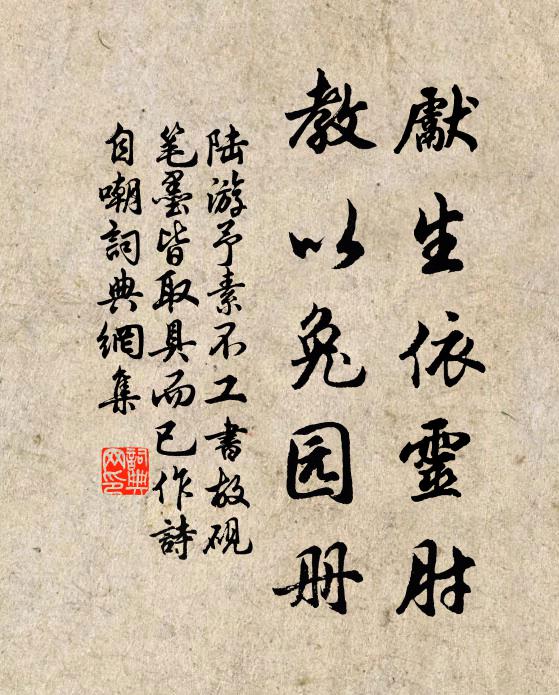 獻生依靈肘
教以兔园册
陆游予素不工書故硯
笔墨皆取具而已作詩
自嘲詞典網集
詞典
网印